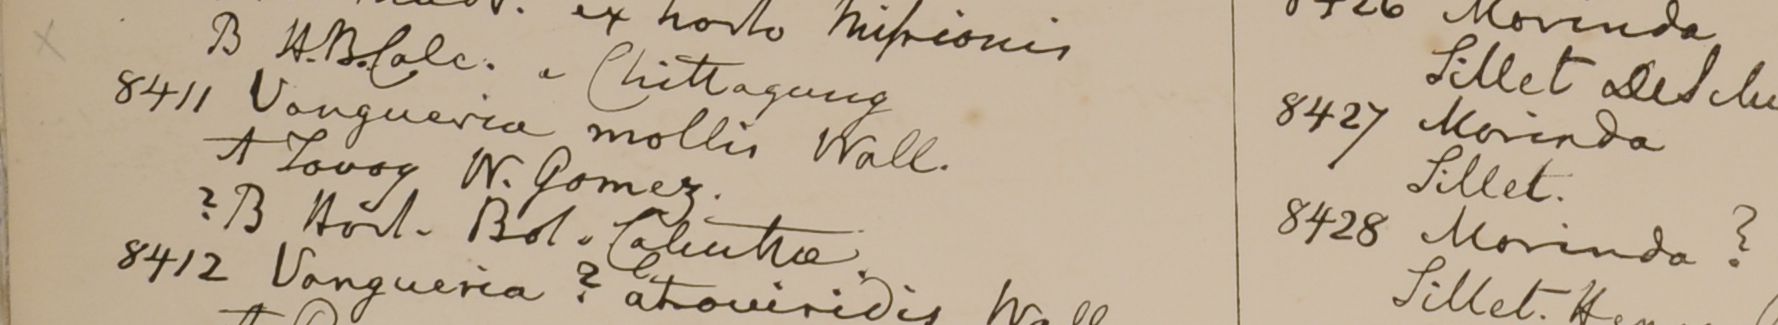 ex horto Missionis
B H.B. Calc. e Chittagung
8411 Vangueria mollis Wall.
A Tavoy W. Gomez.
?B Hort. Bot. Calcuttae.
8412 Vangueria ? atroviridis Wall
8426 Morinda
Sillet
8427 Morinda
Sillet.
8428 Morinda ?
Sillet.